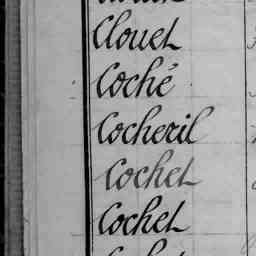 Clouet
Coché
Cocheril
Cochet
Cochet